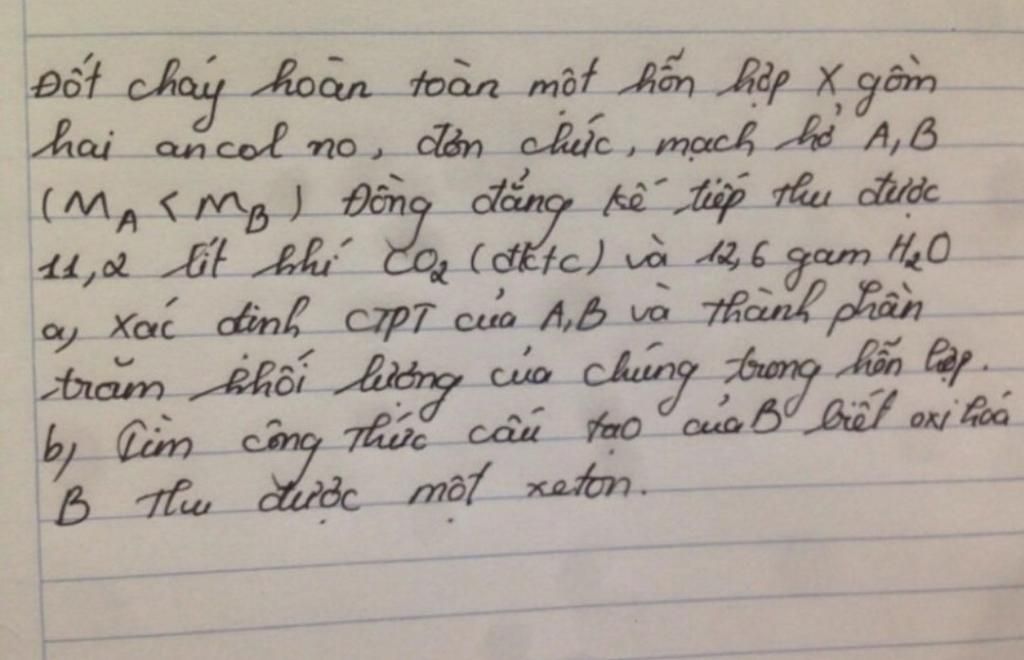 Đốt cháy hoàn toàn một hỗn hợp X gồm
hai ancol no, đơn chức, mạch hở A, B
(MA < MB) Đồng đẳng kế tiếp thu được
11,2 lít khí CO2 (đktc) và 12,6 gam H2O
a, Xác định CTPT của A,B và thành phần
trăm khối lượng của chúng trong hỗn hợp.
b, Tìm công thức cấu tạo của B biết oxi hoá
B thu được một xeton.